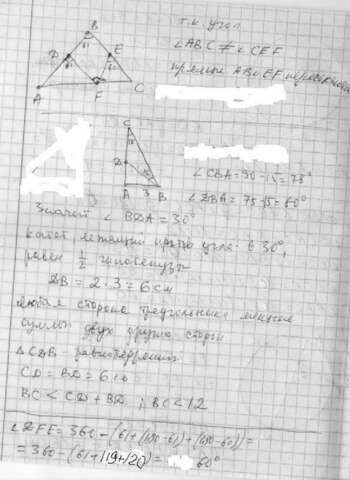 B
61
D
E
61
60
A
F
C
т.к. угол
∠ABC ≠ ∠CEF
прямые AB и EF пересекаются
C
15
D
15
A 3 B
∠CBA = 90 - 15 = 75°
∠DBA = 75 - 15 = 60°
Значит ∠BDA = 30°
катет, лежащий против угла в 30°,
равен 1/2 гипотенузы
DB = 2 · 3 = 6 см
любая сторона треугольника меньше
суммы двух других сторон
△CDB - равнобедренный
CD = BD = 6 см
BC < CD + BD ; BC < 12
∠DFE = 360 - (61 + (180 - 61) + (180 - 60)) =
= 360 - (61 + 119 + 120) = 60°